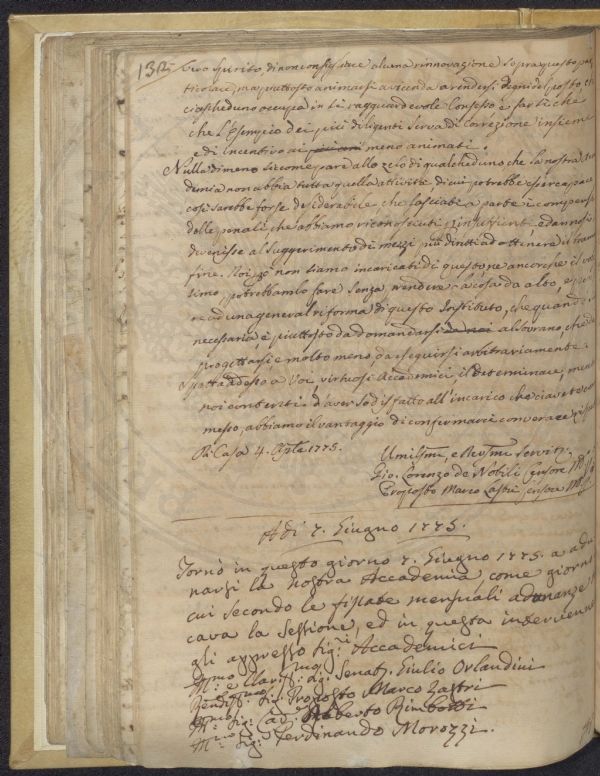 132
vivo spirito, di non consigliare alcuna rinnovazione sopra questo par
ticolare, ma piuttosto animarsi a vicenda a rendersi degni del posto, che
ciascheduno occupa in sì ragguardevole Consesso e far sì che
che l'Esempio dei più diligenti serva di Correzione insieme
e di Incentivo ai meno animati.
Nulladimeno siccome pare allo zelo di qualcheduno che la nostra Acca
demia non abbia tutta quella attività di cui potrebbe esser capace
così sarebbe forse desiderabile che lasciati a parte i compensi
delle penali, che abbiamo riconosciuti insufficienti e dannosi
divenisse al suggerimento di mezzi più diretti ad ottenere il bramato
fine. Noi non siamo incaricati di questo ne ancorchè il
simo, potrebbamlo fare senza rendere la cosa da alto, e
ad una general riforma di questo Instituto, che quando
necessaria, è piuttosto da domandarsi da noi al Sovrano, che da
progettarsi, e molto meno, da eseguirsi arbitrariamente.
Spetta adesso a Voi, virtuosi Accademici, il determinare, mentre
noi contenti d'aver sodisfatto all'incarico che ci avete com
messo, abbiamo il vantaggio di confermarci con verace
Di Casa 4. Aple 1775.
Umilmi, e Devmi Servi
Gio. Lorenzo de Nobili Censore
Proposto Marco Lastri Censore
Adì 7. Giugno 1775.
Tornò in questo giorno 7. Giugno 1775. a adu
narsi la nostra Accademia, come giorno
cui secondo le fissate mensuali adunanze
cava la Sessione, ed in questa intervenne
gli appresso Sigri Accademici
Illmo e Clarismo Sig. Senat. Giulio Orlandini
Rendiss. Sig. Proposto Marco Lastri
Illmo Sig. Cav. Roberto Bimbotti
Illmo Sig. Ferdinando Morozzi.